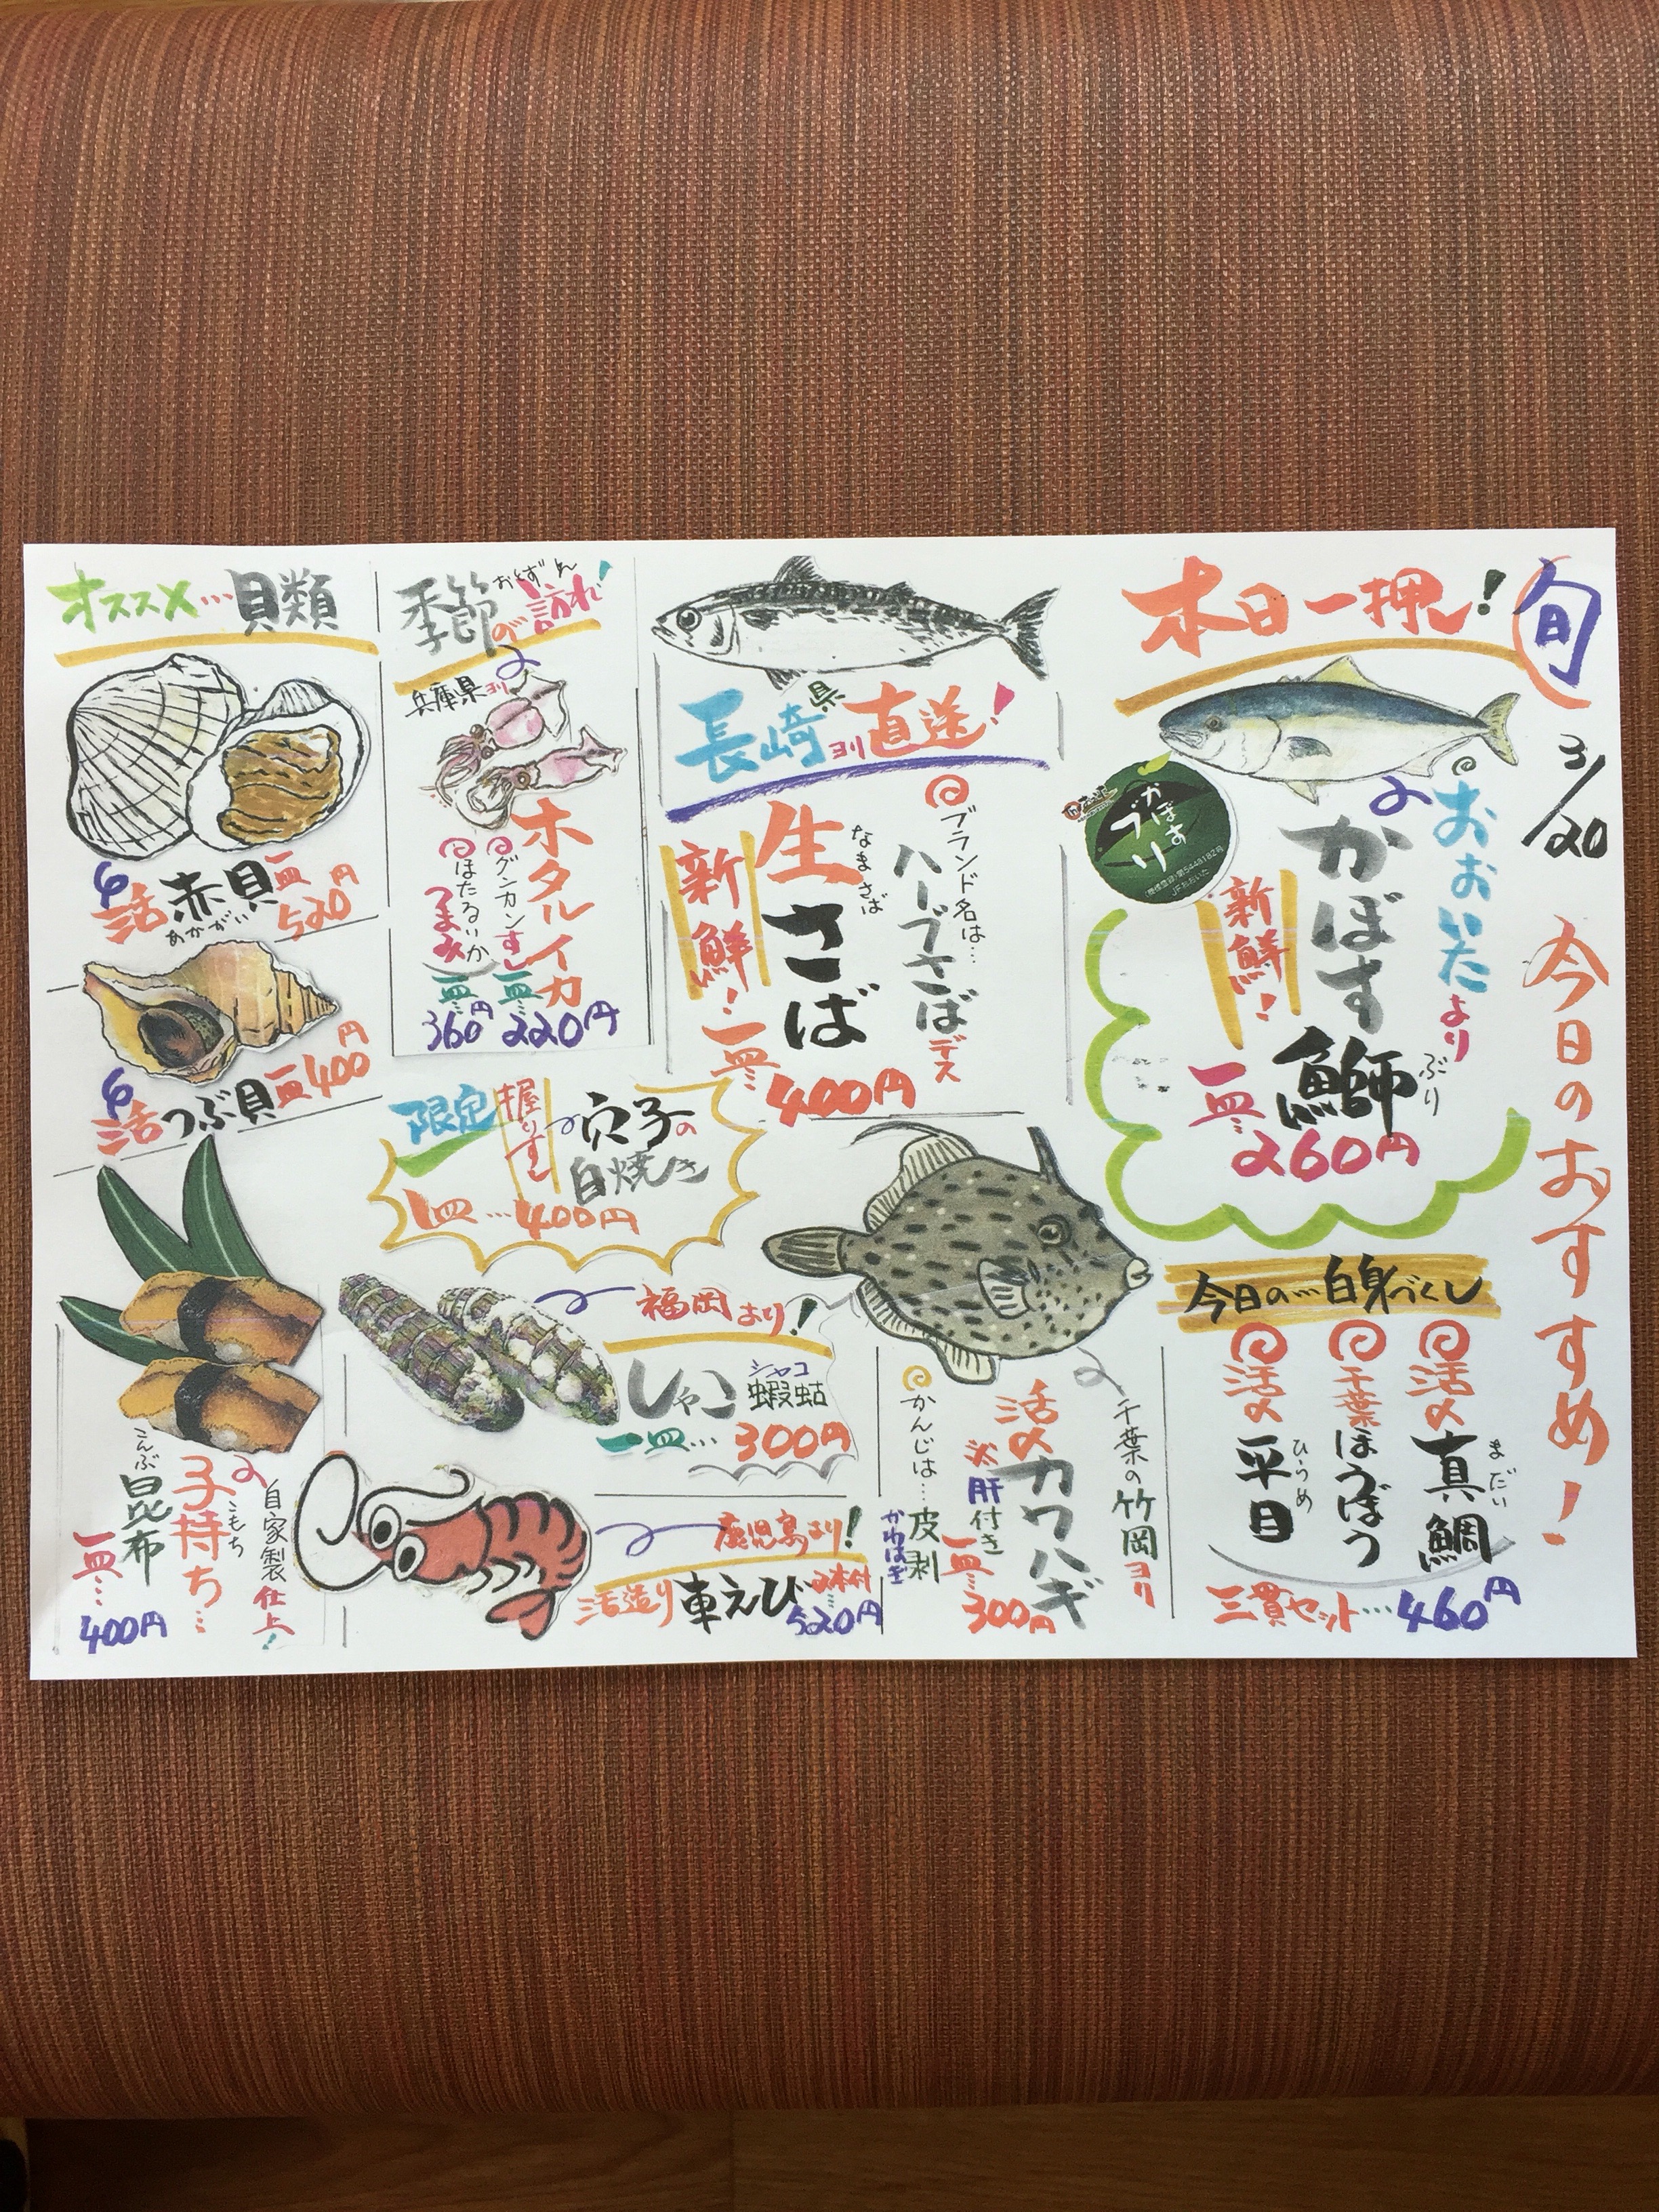 旬
3/20
今日のおすすめ!
本日一押し!
おおいたより
かぼす鰤
ぶり
新鮮!
一皿…260円
かぼすブリ
JFおおいた
今日の…白身づくし
活〆真鯛
まだい
千葉ほうぼう
活〆平目
ひらめ
三貫セット…460円
長崎県ヨリ直送!
ブランド名は…
ハーブさばデス
生さば
なまさば
新鮮!
一皿…400円
千葉の竹岡ヨリ
活〆カワハギ
※肝付き
一皿…300円
かんじは…皮剥
かわはぎ
季節の訪れ!
おとずれ
兵庫県ヨリ
ホタルイカ
グンカンすし
一皿…220円
ほたるいか
つまみ
一皿…360円
限定
握りすし
穴子の
白焼き
1皿…400円
福岡より!
しゃこ
シャコ
蝦蛄
一皿…300円
鹿児島より!
活造り車えび
2本付…520円
オススメ…貝類
活赤貝
あかがい
一皿…520円
活つぶ貝
一皿…400円
自家製仕上!
子持ち…
こもち
昆布
こんぶ
一皿…400円